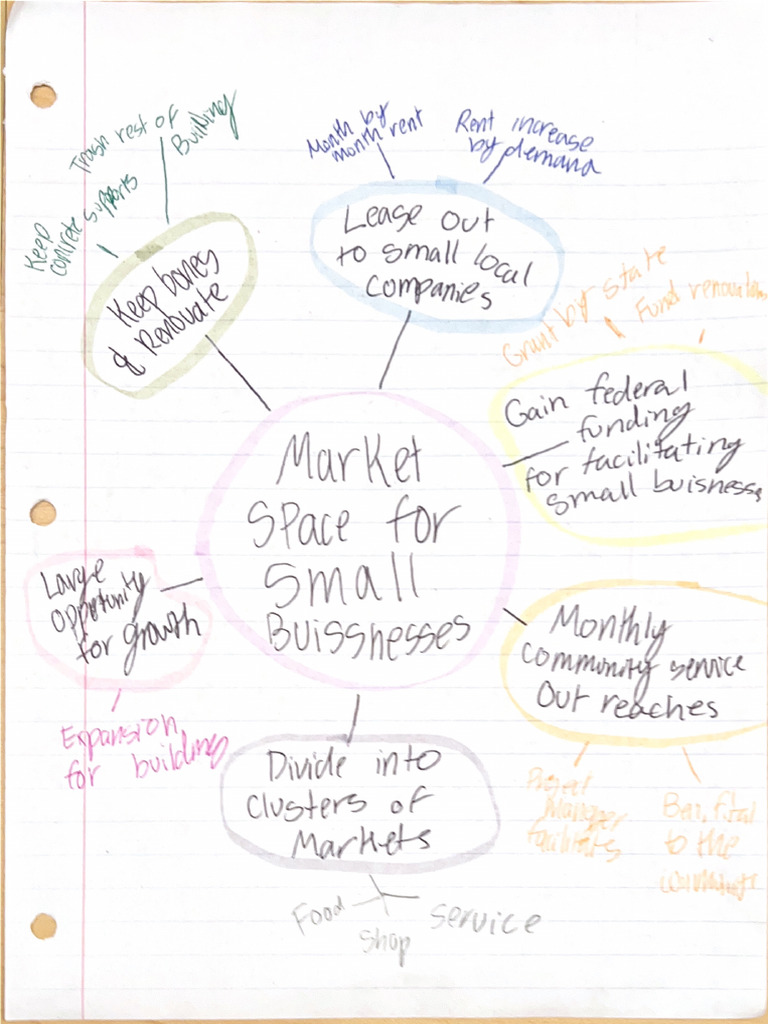 Trash rest of
Building
Keep
concrete supports
Keep bones
& Renovate
Month by
month rent
Rent increase
by demand
Lease Out
to small local
companies
Grant by state
Fund renovations
Gain federal
funding
for facilitating
small buisnesses
Market
Space for
Small
Buissnesses
Large
opportunity
for growth
Expansion
for building
Monthly
community service
Out reaches
Project
Manager
facilitates
to the
Divide into
Clusters of
Markets
Food
Shop
Service